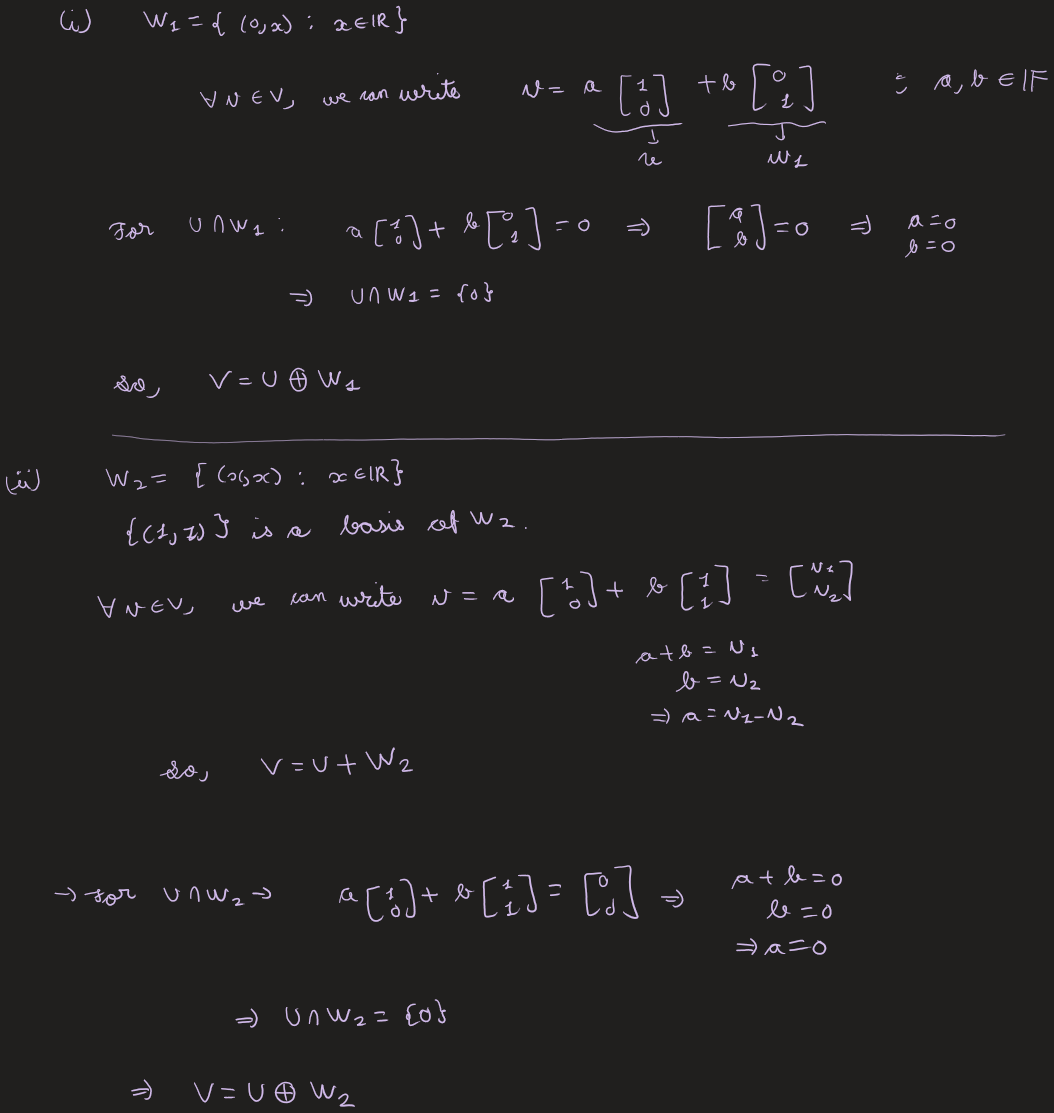 (i) W₁ = { (0,x) : x∈ℝ }
∀ v∈V, we can write v = a [1 0] + b [0 1] ; a, b ∈ 𝔽
u w₁
For U∩W₁ : a [1 0] + b [0 1] = 0 ⇒ [a b] = 0 ⇒ a=0
b=0
⇒ U∩W₁ = {0}
so, V = U ⊕ W₁
(ii) W₂ = { (x,x) : x∈ℝ }
{(1,1)} is a basis of W₂.
∀ v∈V, we can write v = a [1 0] + b [1 1] = [v₁ v₂]
a+b = v₁
b = v₂
⇒ a = v₁-v₂
so, V = U + W₂
→ for U∩W₂ → a [1 0] + b [1 1] = [0 0] ⇒ a + b = 0
b = 0
⇒ a = 0
⇒ U∩W₂ = {0}
⇒ V = U ⊕ W₂